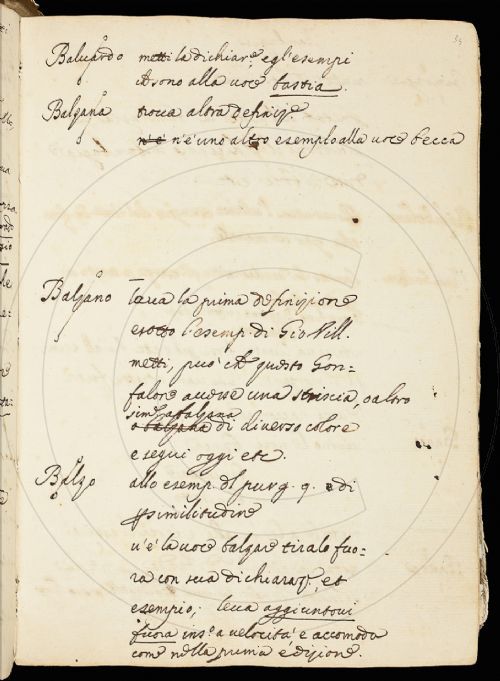 Baluardo metti la dichiar.e e gl'esempi
ch sono alla uoce bastia.
Balzana trova altra definiz.e
n'è n'è uno altro esemplo alla uoce becca
Balzano Leua la prima definizione
e sotto l'esemp. di Gio Vill.
metti, può ch questo Gon=
falone auesse una striscia, o altro
sim.e a balzana
o balzana di diuerso colore
e segui oggi etc.
Balzo allo esemp. dl purg. 9. e di
similitudine
u'è la uoce balzare tiralo fuo=
ra con sua dichiaraz.e, et
esempio; leua aggiuntoui
fuora ins.o a uelocità e accomoda
come nella prima edizione.